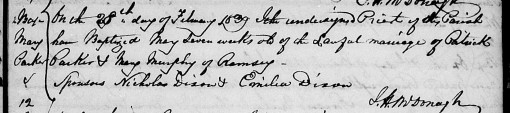 On the 28th day of February 1839 I the undersigned Priest of this Parish
Mary have Baptized Mary Seven weeks old of the Lawful marriage of Patrick
Parker Parker & Mary Murphy of Ramsey
& Sponsors Nicholas Dixon & Emilia Dixon
12 J. H. McDonagh